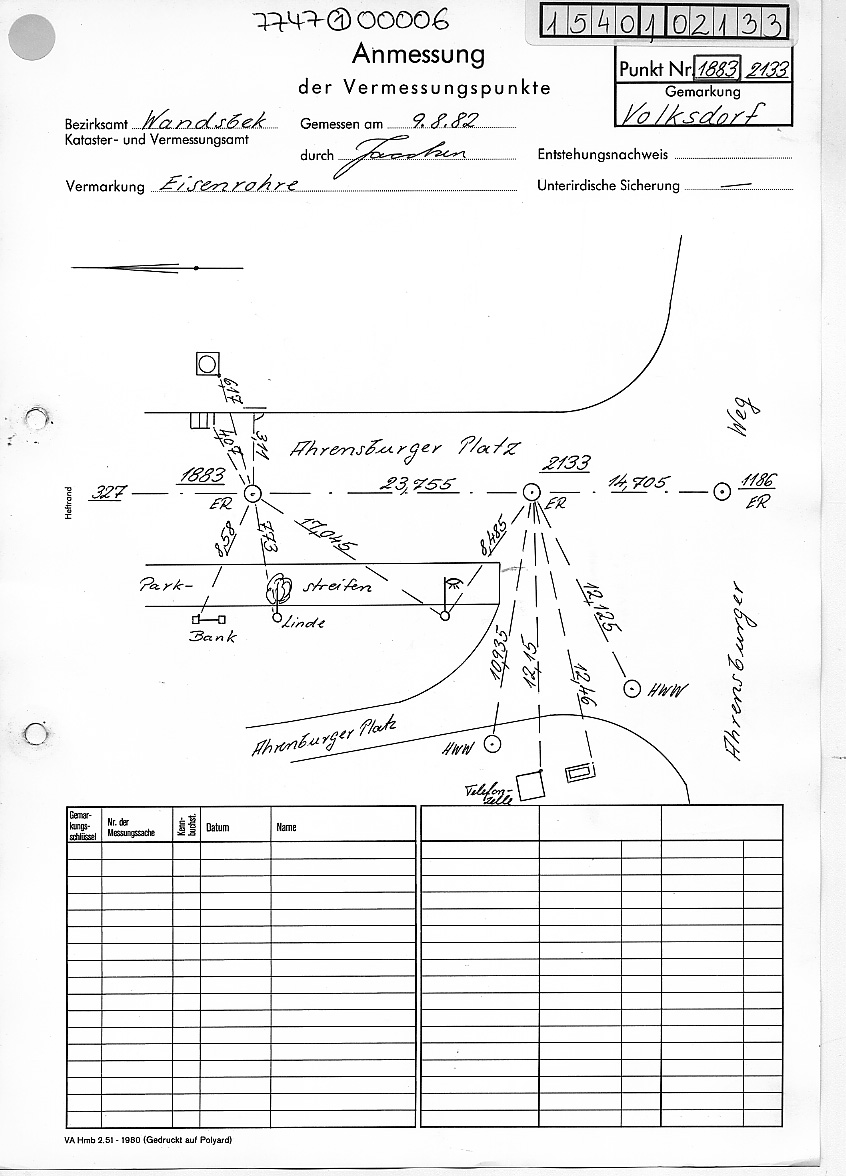 7747 ① 00006
1540102133
Anmessung
der Vermessungspunkte
Punkt Nr. 1883 2133
Gemarkung
Volksdorf
Bezirksamt Wandsbek
Kataster- und Vermessungsamt
Gemessen am 9.8.82
durch
Entstehungsnachweis
Vermarkung Eisenrohre
Unterirdische Sicherung —
6,17
4,07
3,11
Ahrensburger Platz
Weg
327
1883
ER
23,755
2133
ER
14,705
1186
ER
Heftrand
8,58
7,73
17,045
8,485
Park-
streifen
Bank
Linde
10,935
12,15
12,46
12,125
HWW
Ahrensburger
Ahrenburger Platz
HWW
Telefon-
zelle
Gemar-
kungs-
schlüssel
Nr. der
Messungssache
Kenn-
buchst.
Datum
Name
VA Hmb 2.51 - 1980 (Gedruckt auf Polyard)